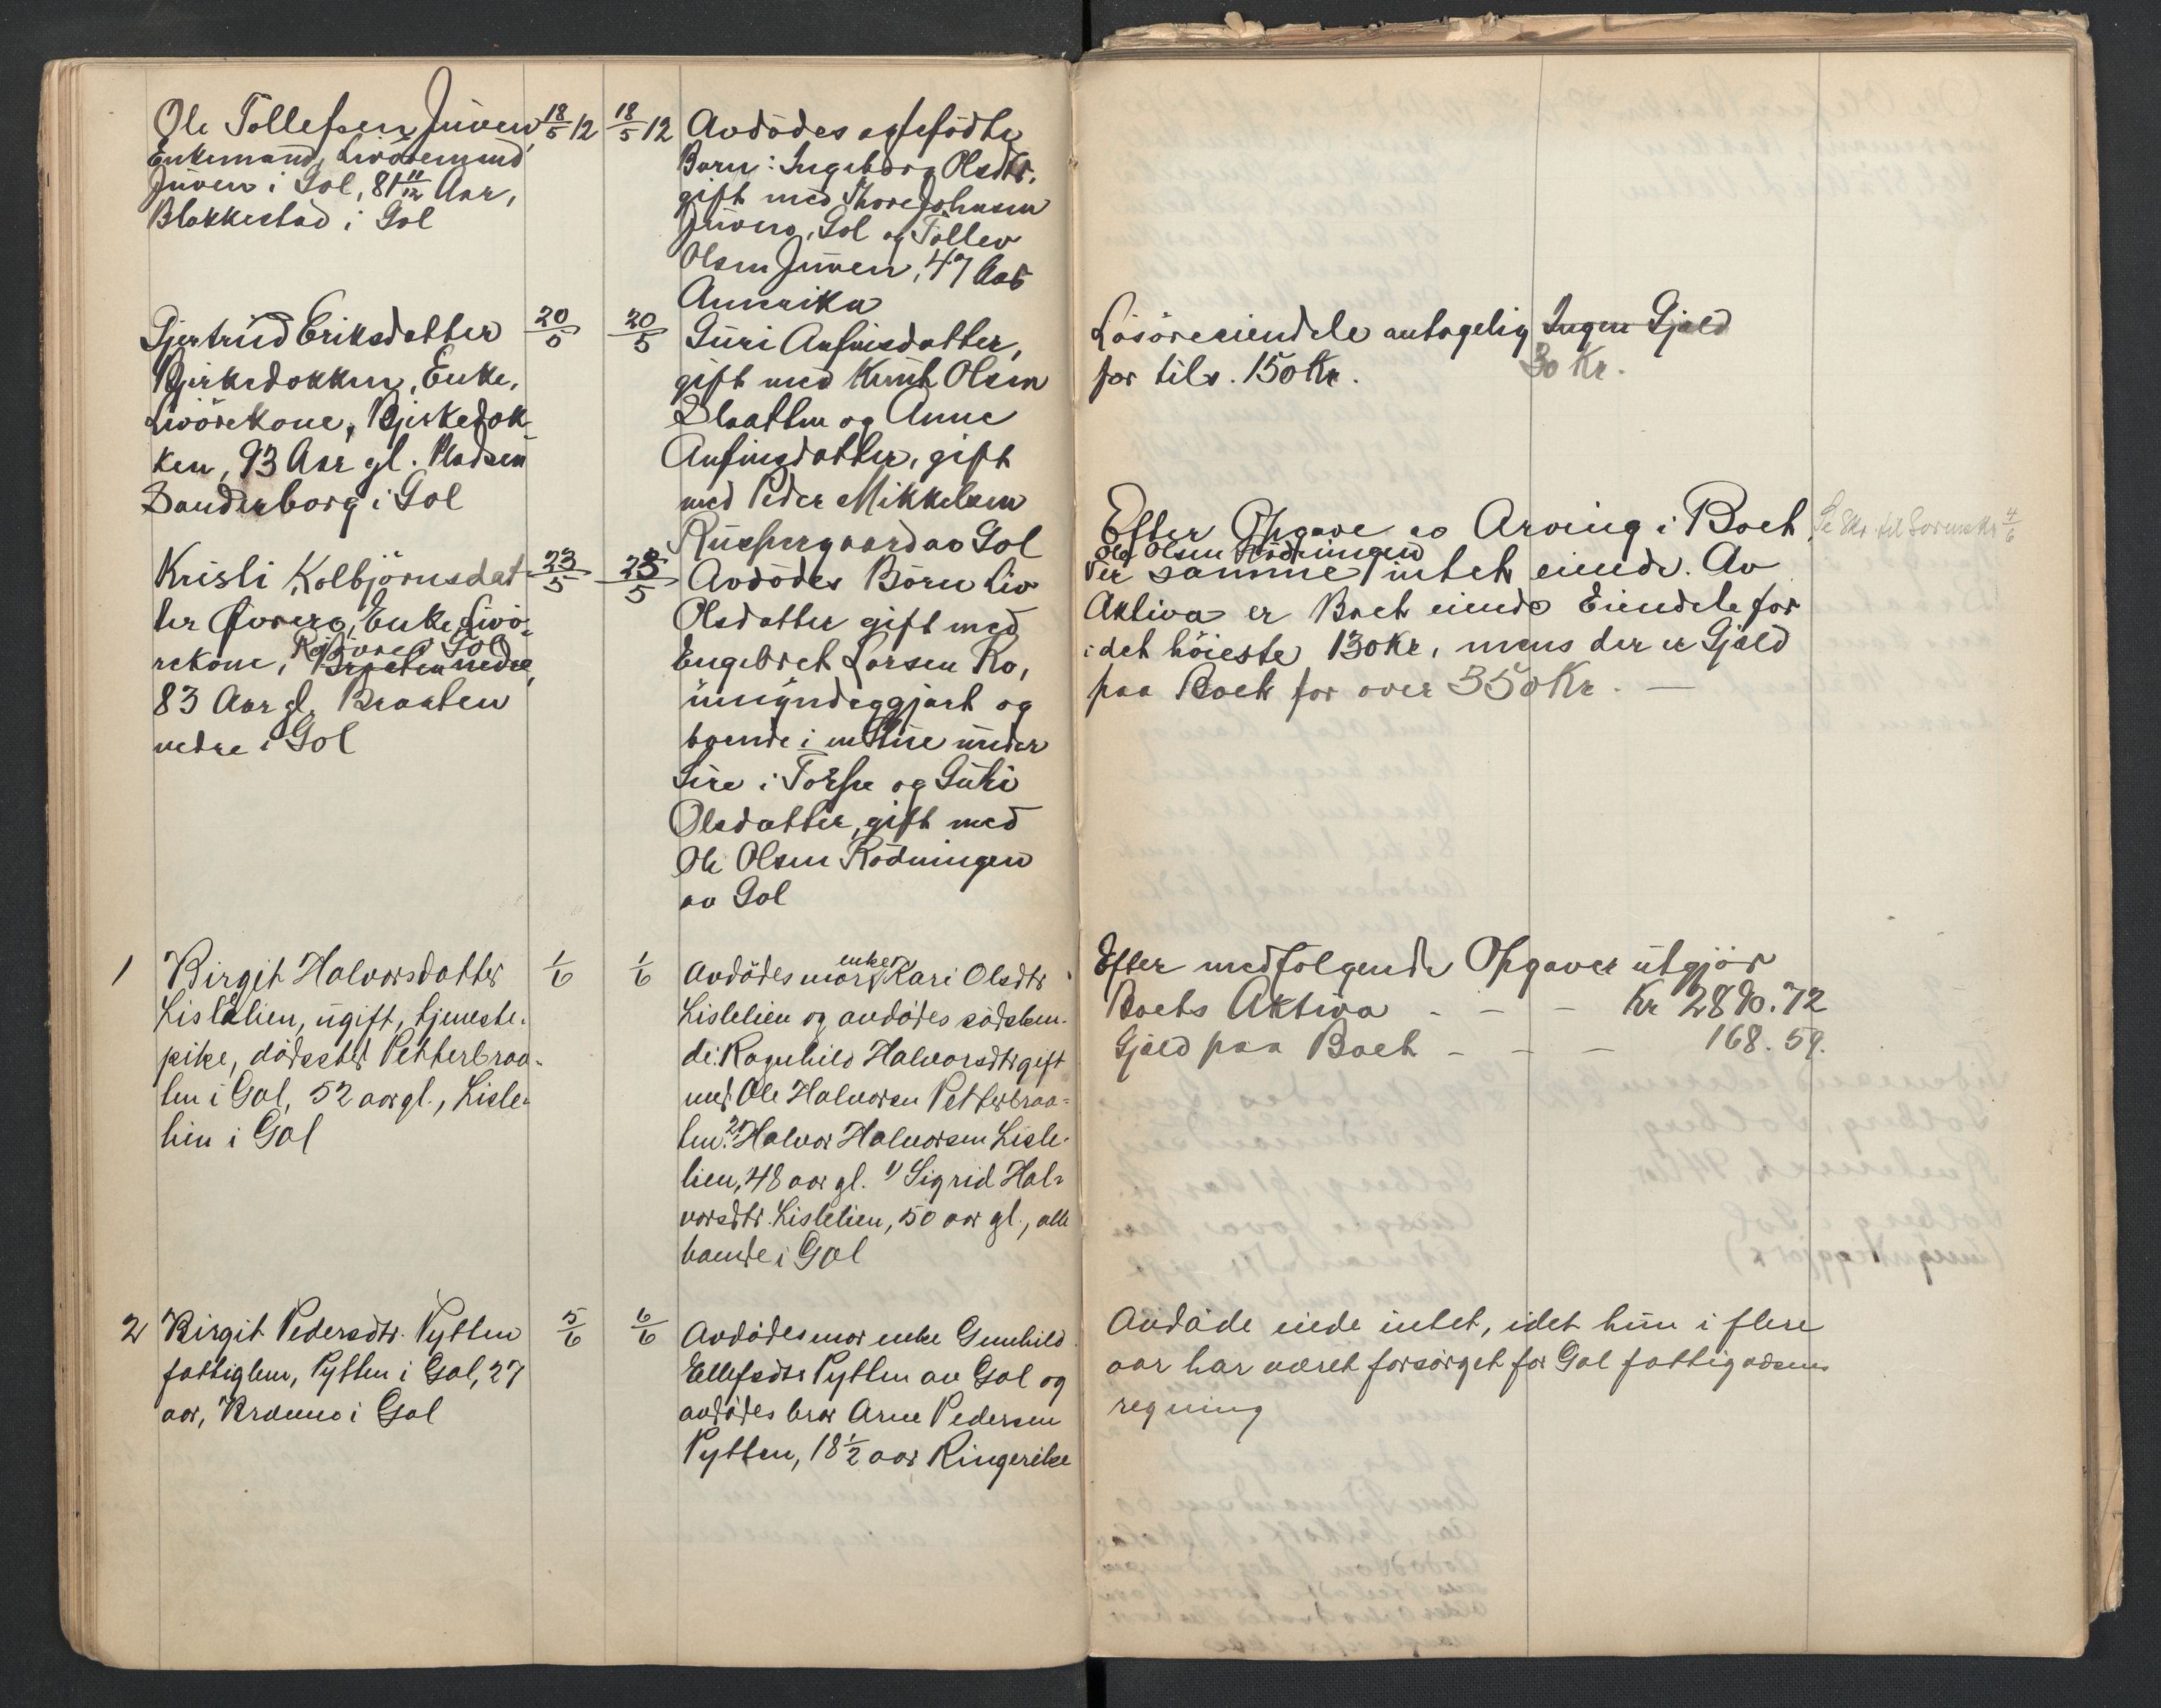 Ole Tollefsen Juven, 18/5 12 18/5 12
Enkemand, Livöremand
Juven i Gol, 81 11/12 Aar,
Blakkestad i Gol
Avdödes egtefödte
Barn: Ingeborg Olsdtr.
gift med Thore Johnsen
Juven, Gol og Tollev
Olsen Juven, 47 Aar
Amerika
Gjertrud Eriksdatter 20/5 20/5
Bjerkedokken, Enke,
Livörekone, Bjerkedok-
ken, 93 Aar gl. Pladsen
Sanderborg i Gol
Guri Anfinsdatter,
gift med Knut Olsen
Slaatten og Anne
Anfinsdatter, gift
med Peder Mikkelsen
Ruspergaard av Gol
Lösöreeiendele antagelig
for tils. 150 Kr.
Ingen Gjæld
30 Kr.
Kristi Kolbjörnsdat- 23/5 25/5
ter Øvrerg, Enke, Livö-
rekone, Braaten nedre,
83 Aar gl. Braaten
nedre i Gol
Avdödes Börn Liv
Olsdatter gift med
Engebret Larsen Ro,
umyndiggjort og
boende i en Stue under
Lire i Torpe og Guri
Olsdatter, gift med
Ole Olsen Rödningen
av Gol
Efter Opgave av Arving i Boet,
Ole Olsen Rödningen
er samme intet eiende. Av
Aktiva er Boet eiende Eiendele for
i det höieste 130 Kr, mens der er Gjæld
paa Boet for over 350 Kr. —
Se Skr. til Sorenskr 4/6
1 Birgit Halvorsdatter 1/6 1/6
Lislelien, ugift, tjeneste-
pike, dödsstet Petterbraa-
ten i Gol, 52 aar gl., Lisle-
lien i Gol
enke
Avdödes mor, Kari Olsdtr
Lislelien og avdödes södsken-
de: Ragnhild Halvorsdtr gift
med Ole Halvorsen Petterbraa-
ten. 2) Halvor Halvorsen Lisle-
lien, 48 aar gl. 1) Sigrid Hal-
vorsdtr. Lislelien, 50 aar gl., alle
boende i Gol
Efter medfölgende Opgaver utgjör
Boets Aktiva - - - Kr 2890.72
Gjæld paa Boet - - - 168.59.
2 Birgit Pedersdtr. Pytten 5/6 6/6
fattiglem, Pytten i Gol, 27
aar, Bræmo i Gol
Avdödes mor enke Gunhild
Ellefsdtr Pytten av Gol og
avdödes bror Arne Pedersen
Pytten, 18 1/2 aar Ringerike
Avdöde eiede intet, idet hun i flere
aar har været forsörget for Gol fattigvæsens
regning